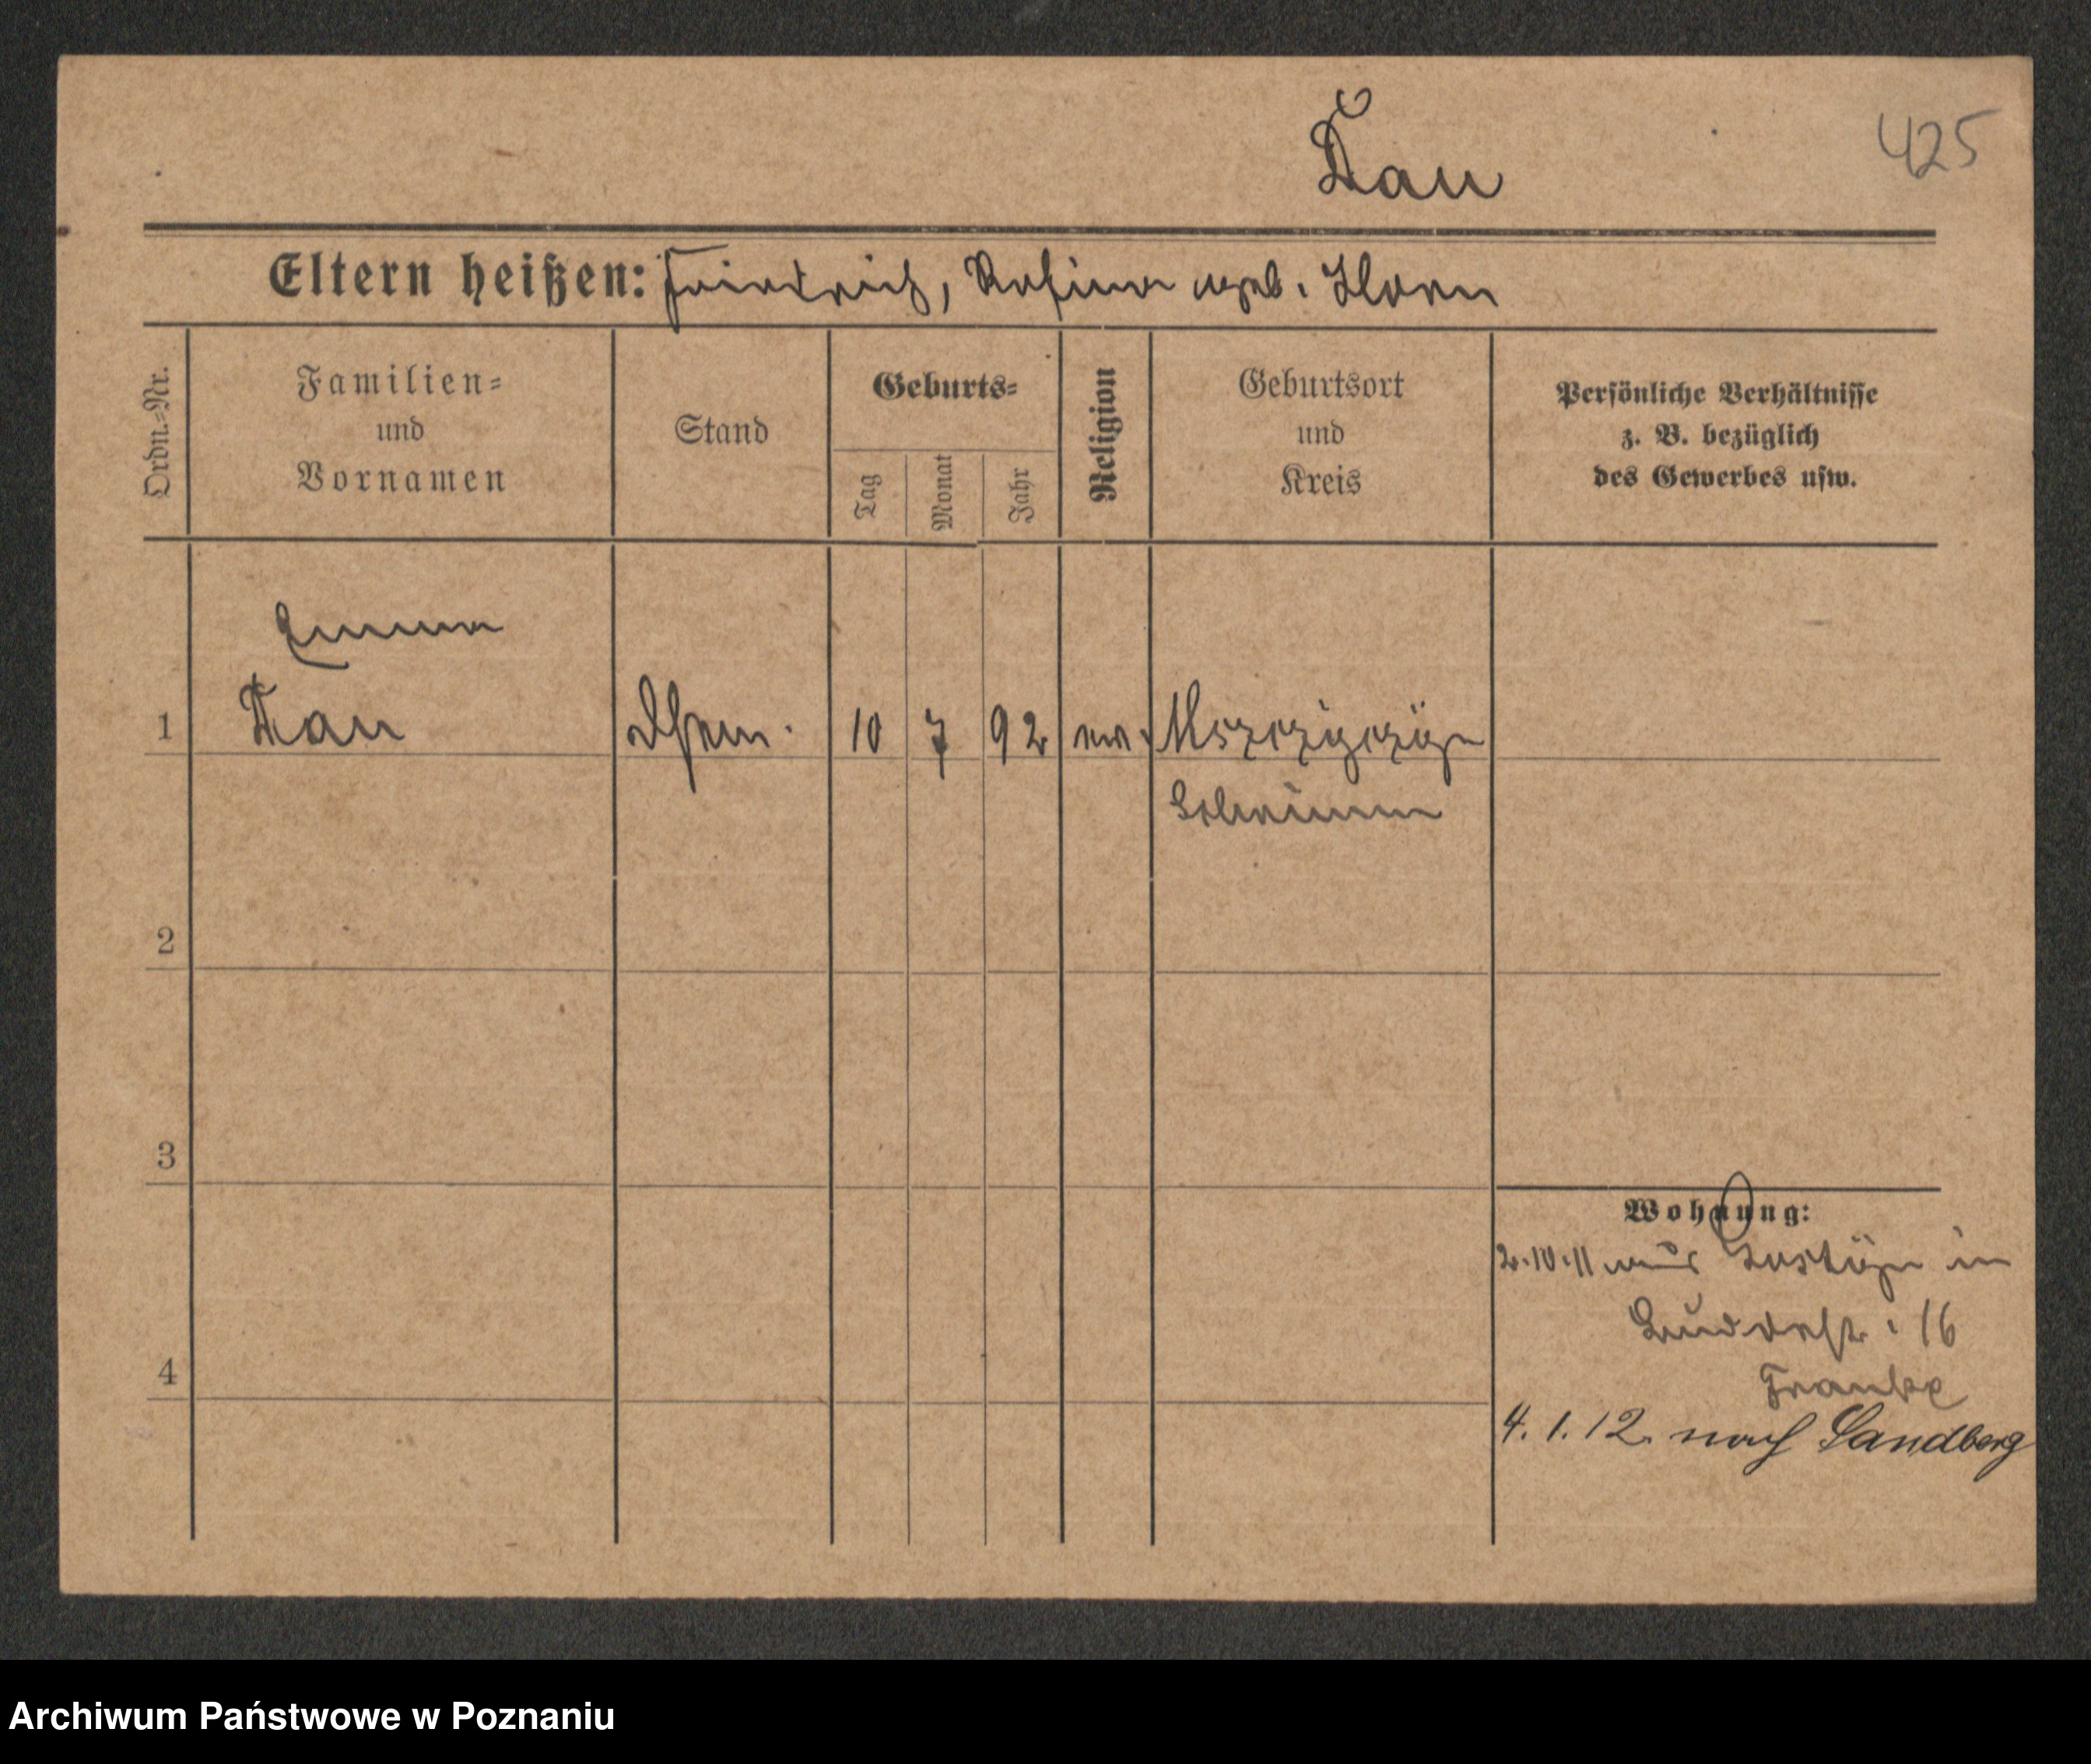 Dau
425
Eltern heißen: Friedrich, Rosina geb. Horn
Ordn.=Nr.
Familien=
und
Vornamen
Stand
Geburts=
Tag
Monat
Jahr
Religion
Geburtsort
und
Kreis
Persönliche Verhältnisse
z. B. bezüglich
des Gewerbes usw.
Emma
1 Dau 10 7 92 ev.
Schrimm
2
3
4
Wohnung:
2.10.11 aus in
16
Franke
4. 1. 12. nach Sandberg
Archiwum Państwowe w Poznaniu